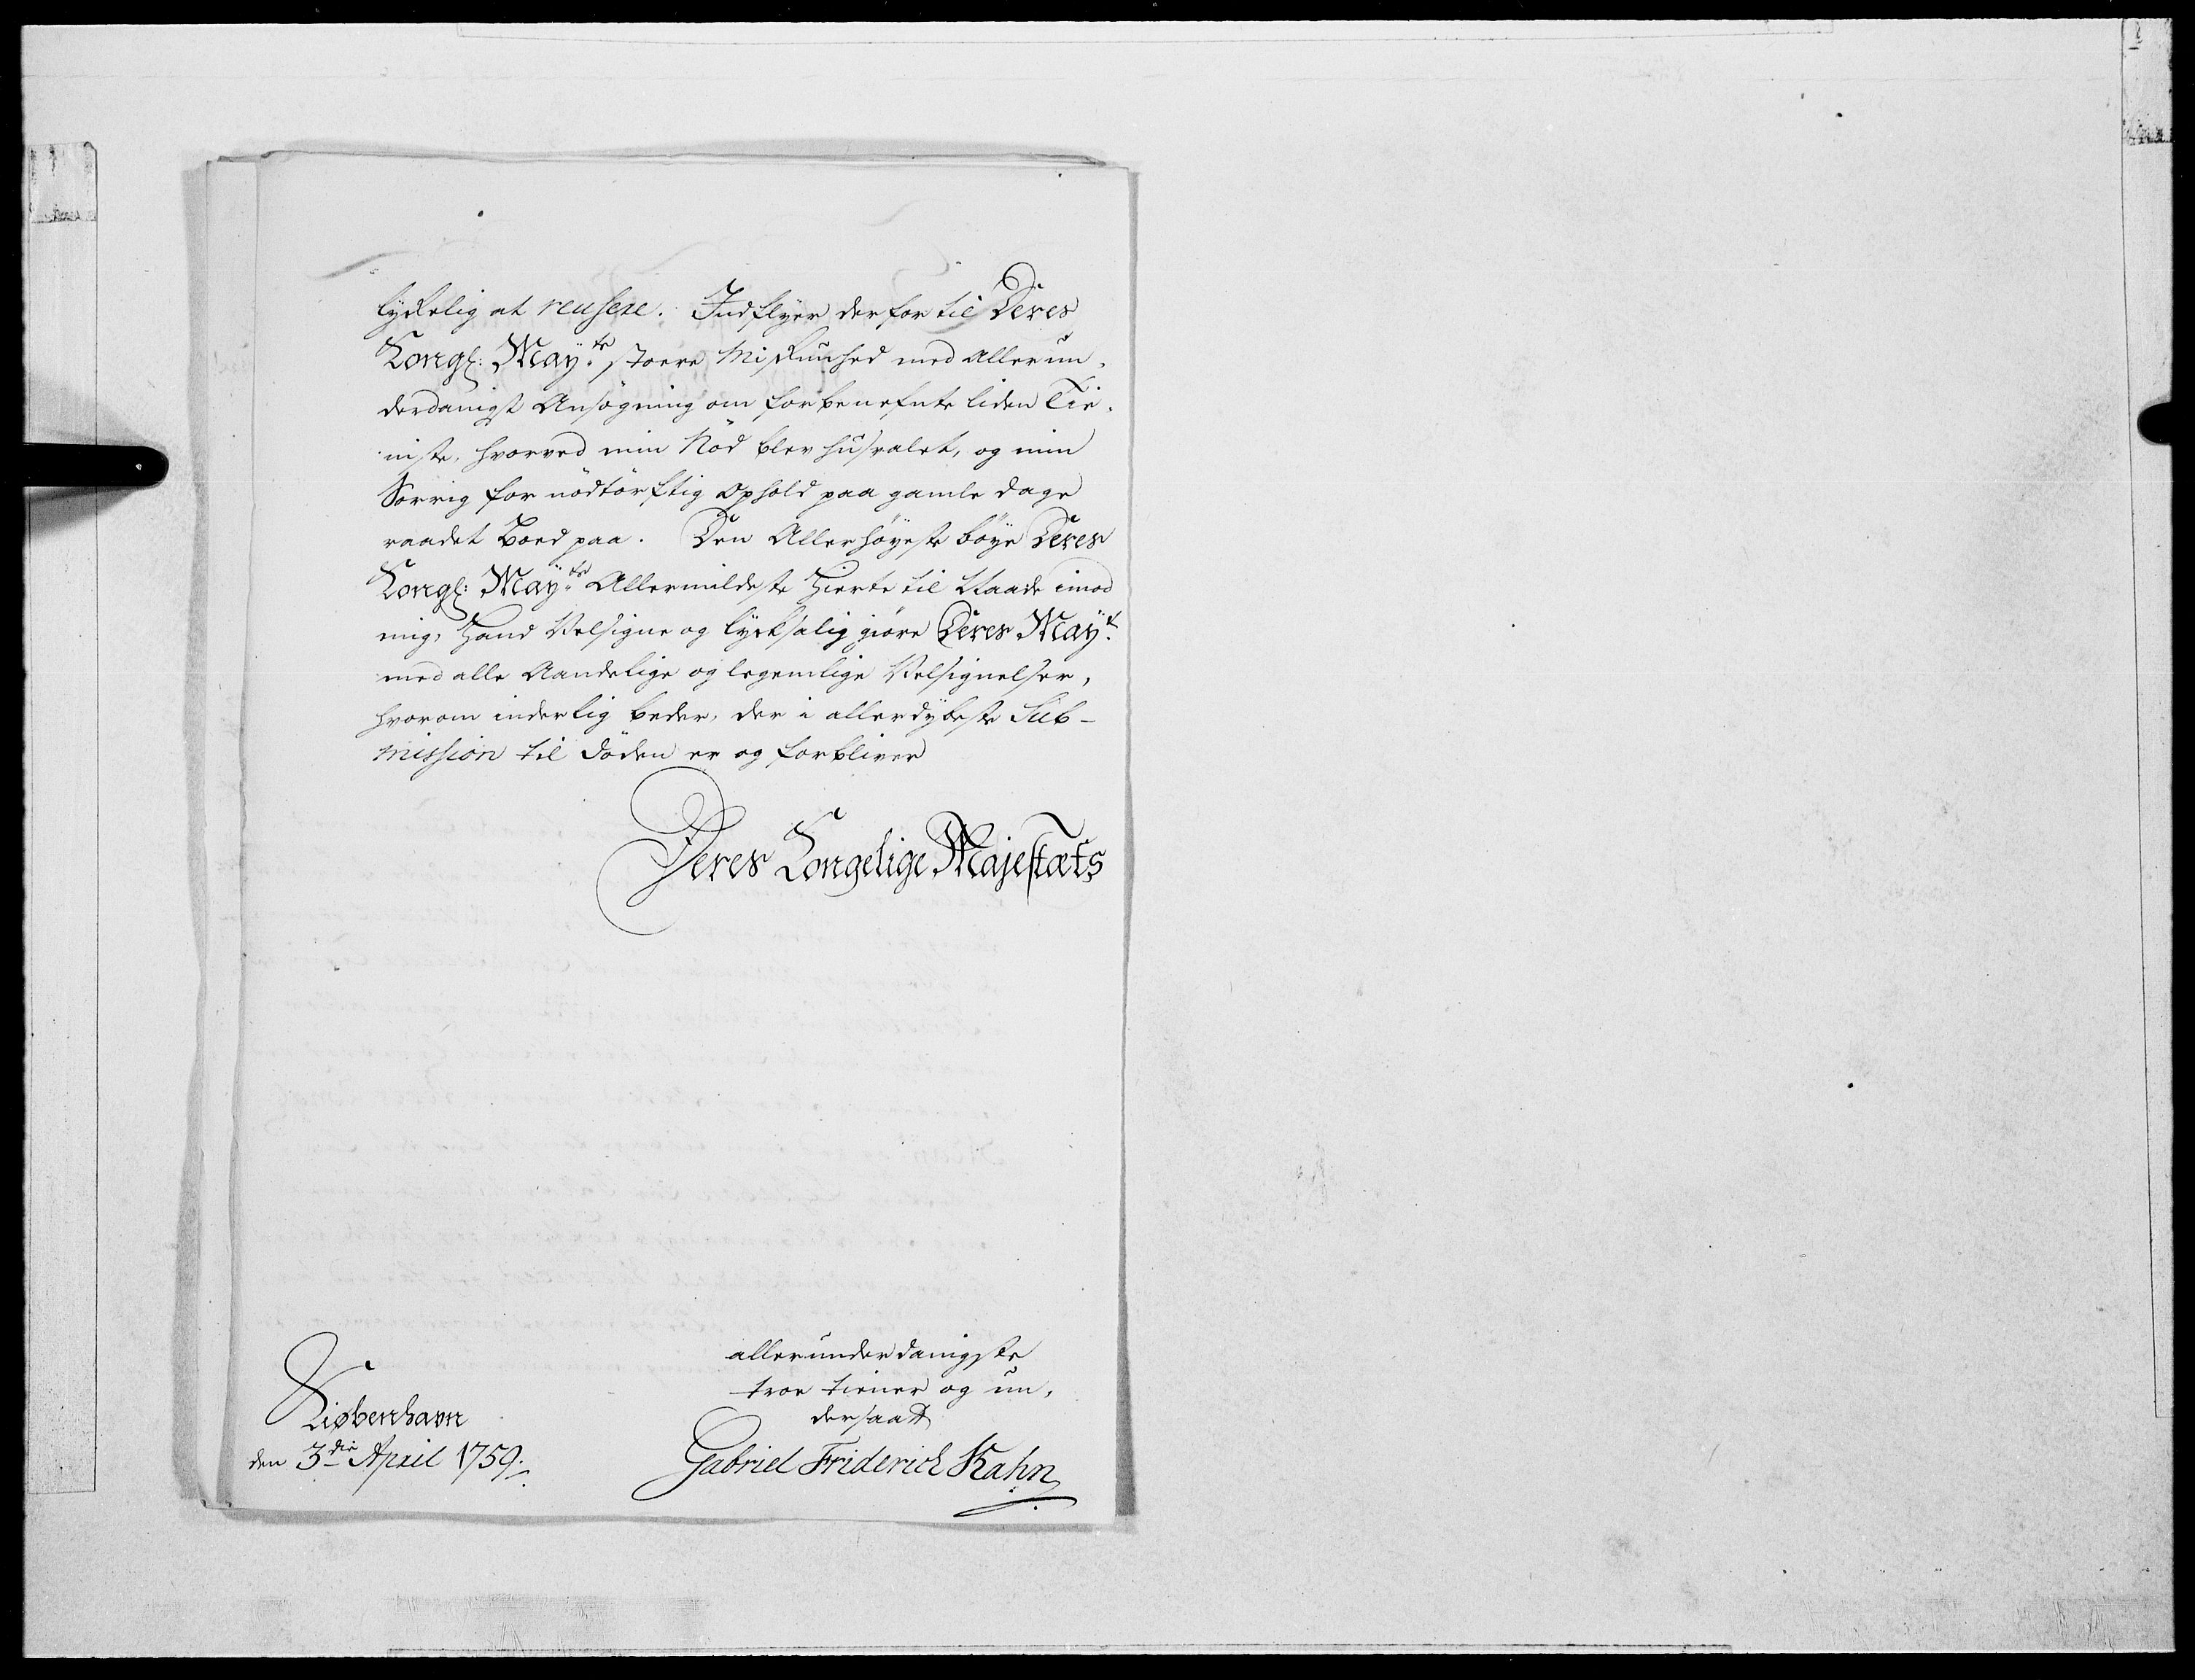 lykelig at reusere. Indflyer derfor til Deres
Kongl: Mayts. stoere Miskunhed med allerun-
derdanigst Ansøgning om forbenefnte liden Tie-
niste, hvorved min Nød blev husvalet, og min
Sorrig for nødtørftig ophold paa gamle dage
raadet Boed paa. Den Allerhøyeste bøye Deres
Kongl: Mayts. Allermildeste Hierte til Naade imod
mig, Hand Velsigne og lycksalig giøre Deres Mayt.
med alle Aandelige og legemlige Velsignelser,
hvorom inderlig beder, der i allerdybeste Sub-
mission til døden er og forbliver
Deres Kongelige Majestæts
allerunderdanigste
troe tiener og un-
dersaatt
Gabriel Friderich Kahn
Kiøbenhavn
den 3die April 1759.